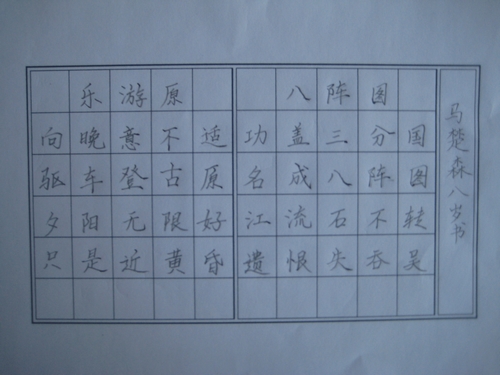 乐游原
向晚意不适
驱车登古原
夕阳无限好
只是近黄昏
八阵图
功盖三分国
名成八阵图
江流石不转
遗恨失吞吴
马楚森八岁书